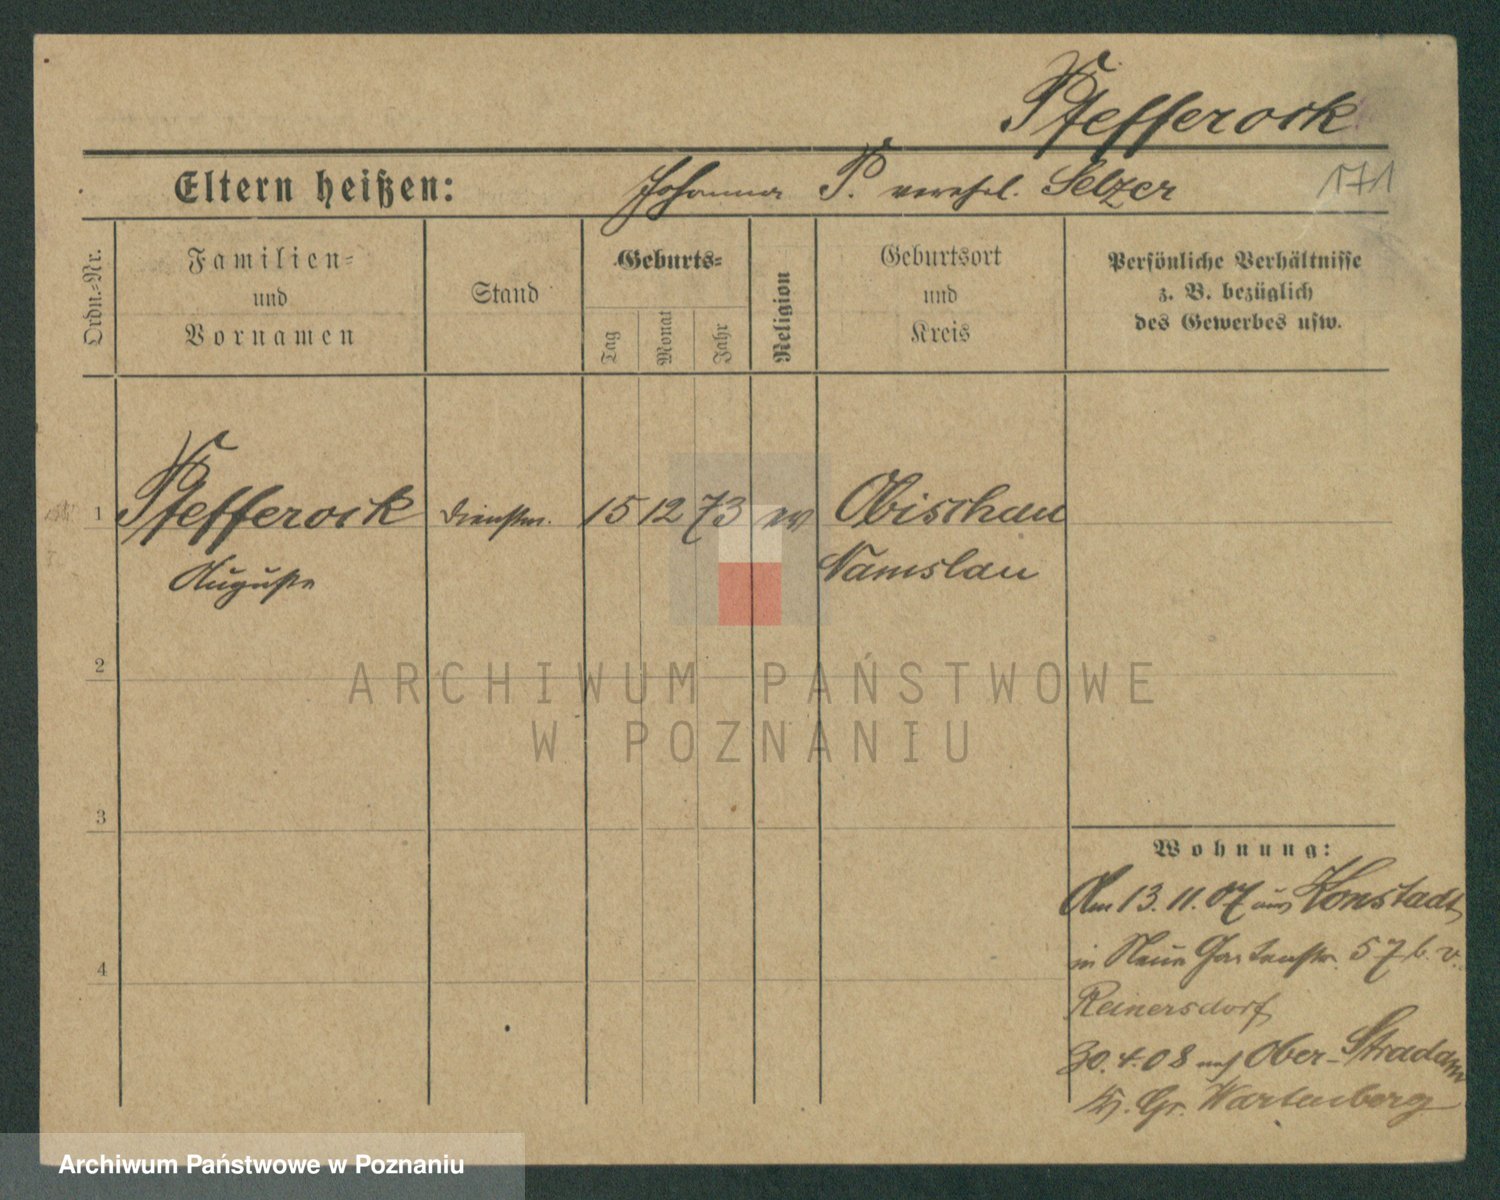 Pfefferock
Eltern heißen: Johanna P. verehel. Selzer 171
Ordn.-Nr.
Familien-
und
Vornamen
Stand
Geburts-
Tag
Monat
Jahr
Religion
Geburtsort
und
Kreis
Persönliche Verhältnisse
z. B. bezüglich
des Gewerbes usw.
1 Pfefferock Dienstm. 15 12 73 ev Obischau
Auguste Namslau
2
3
4
Wohnung:
Am 13.11.07 aus Konstadt
in Neue Gartenstr. 57 b. v.
Reinersdorf
30.4.08 auf Ober-Stradam
Kr. Gr. Wartenberg
ARCHIWUM PAŃSTWOWE
W POZNANIU
Archiwum Państwowe w Poznaniu